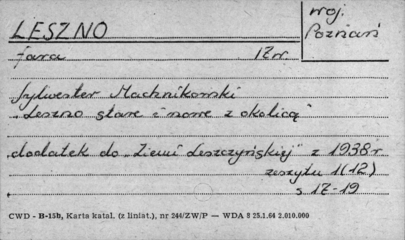 LESZNO
woj.
Poznań
fara 17 w.
Sylwester Machnikowski
"Leszno stare i nowe z okolicą"
dodatek do "Ziemi Leszczyńskiej" z 1938 r
zeszytu 1(12)
s 17-19
CWD - B-15b, Karta katal. (z liniat.), nr 244/ZW/P — WDA 8 25.1.64 2.010.000